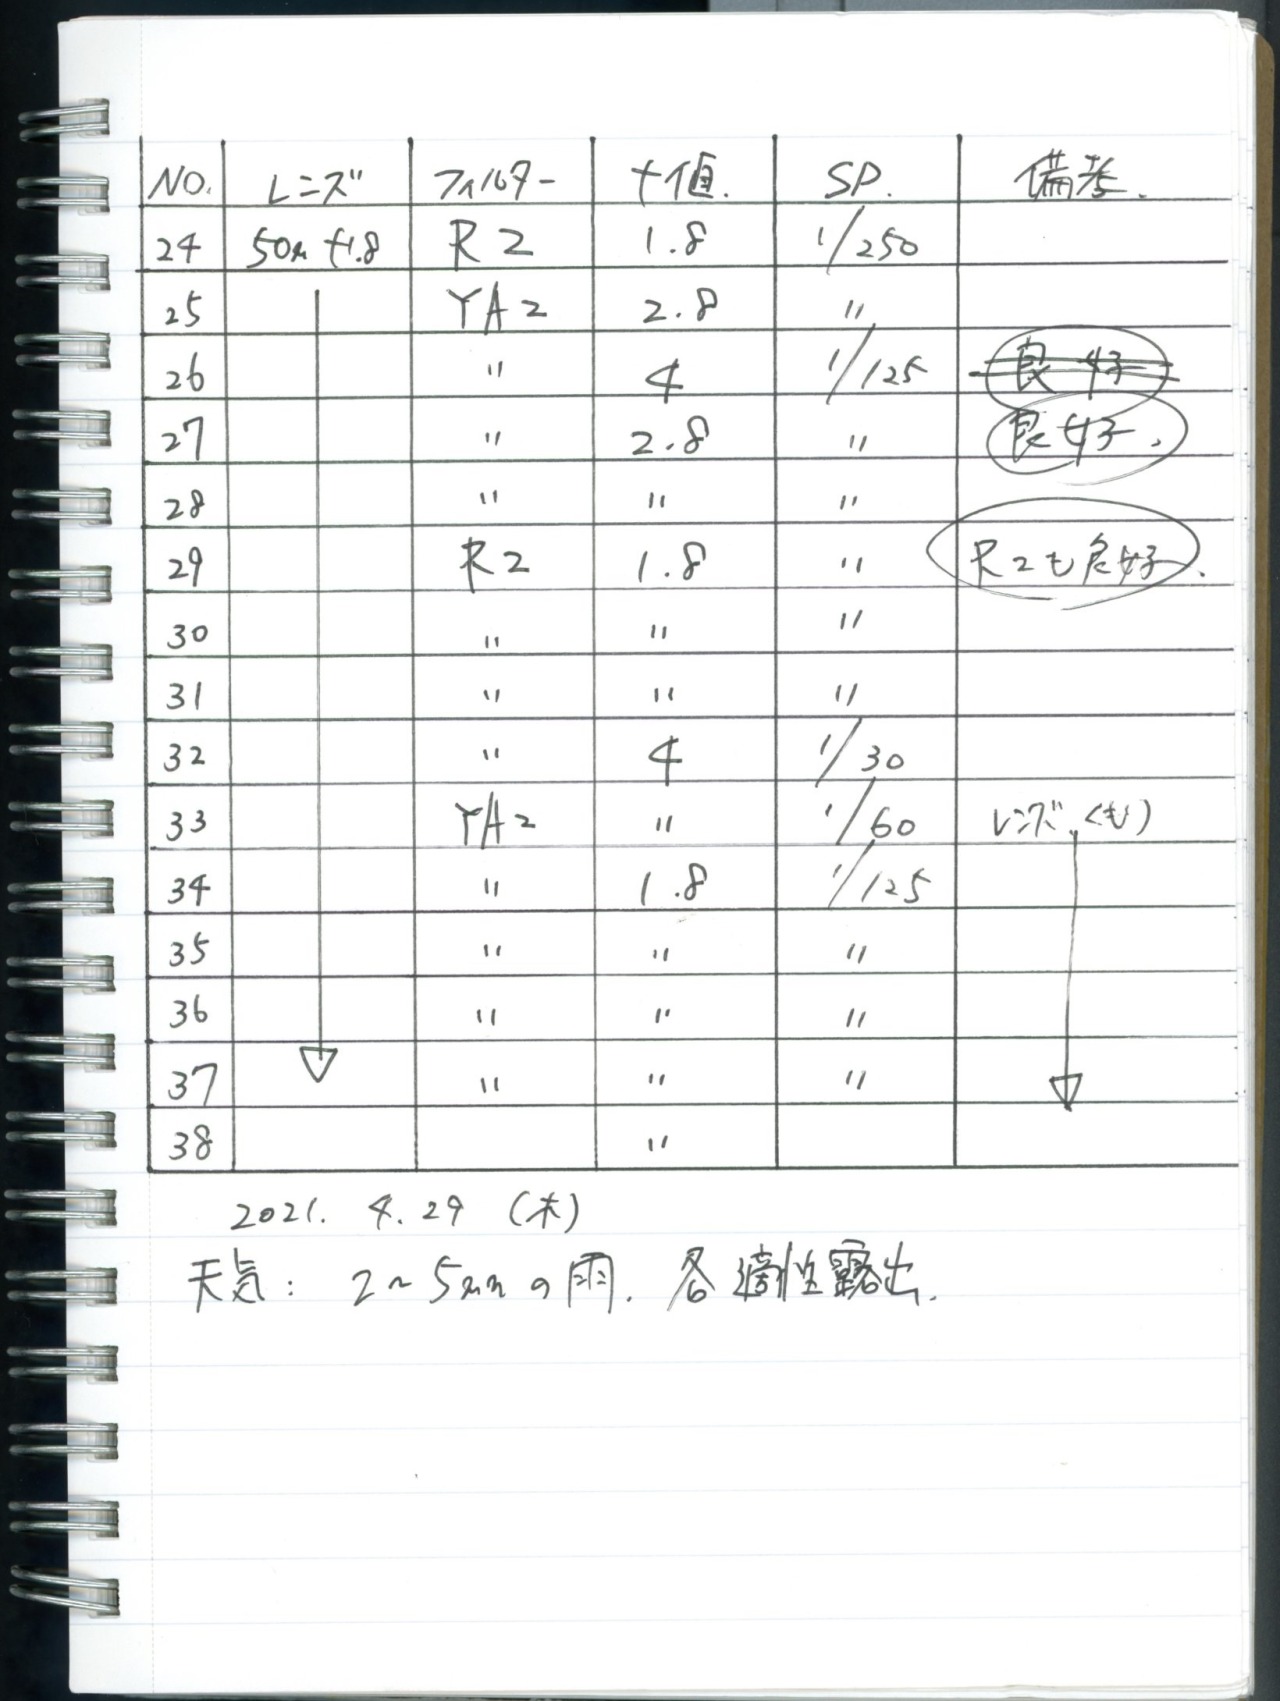 NO. レンズ フィルター f値. SP. 備考.
24 50m f1.8 R2 1.8 1/250
25 YA2 2.8 〃
26 〃 4 1/125 良好
27 〃 2.8 〃 良好.
28 〃 〃 〃
29 R2 1.8 〃 R2も良好.
30 〃 〃 〃
31 〃 〃 〃
32 〃 4 1/30
33 YA2 〃 1/60 レンズくもり
34 〃 1.8 1/125
35 〃 〃 〃
36 〃 〃 〃
37 〃 〃 〃
38 〃
2021. 4. 29 (木)
天気: 2~5mmの雨. 各適性露出.